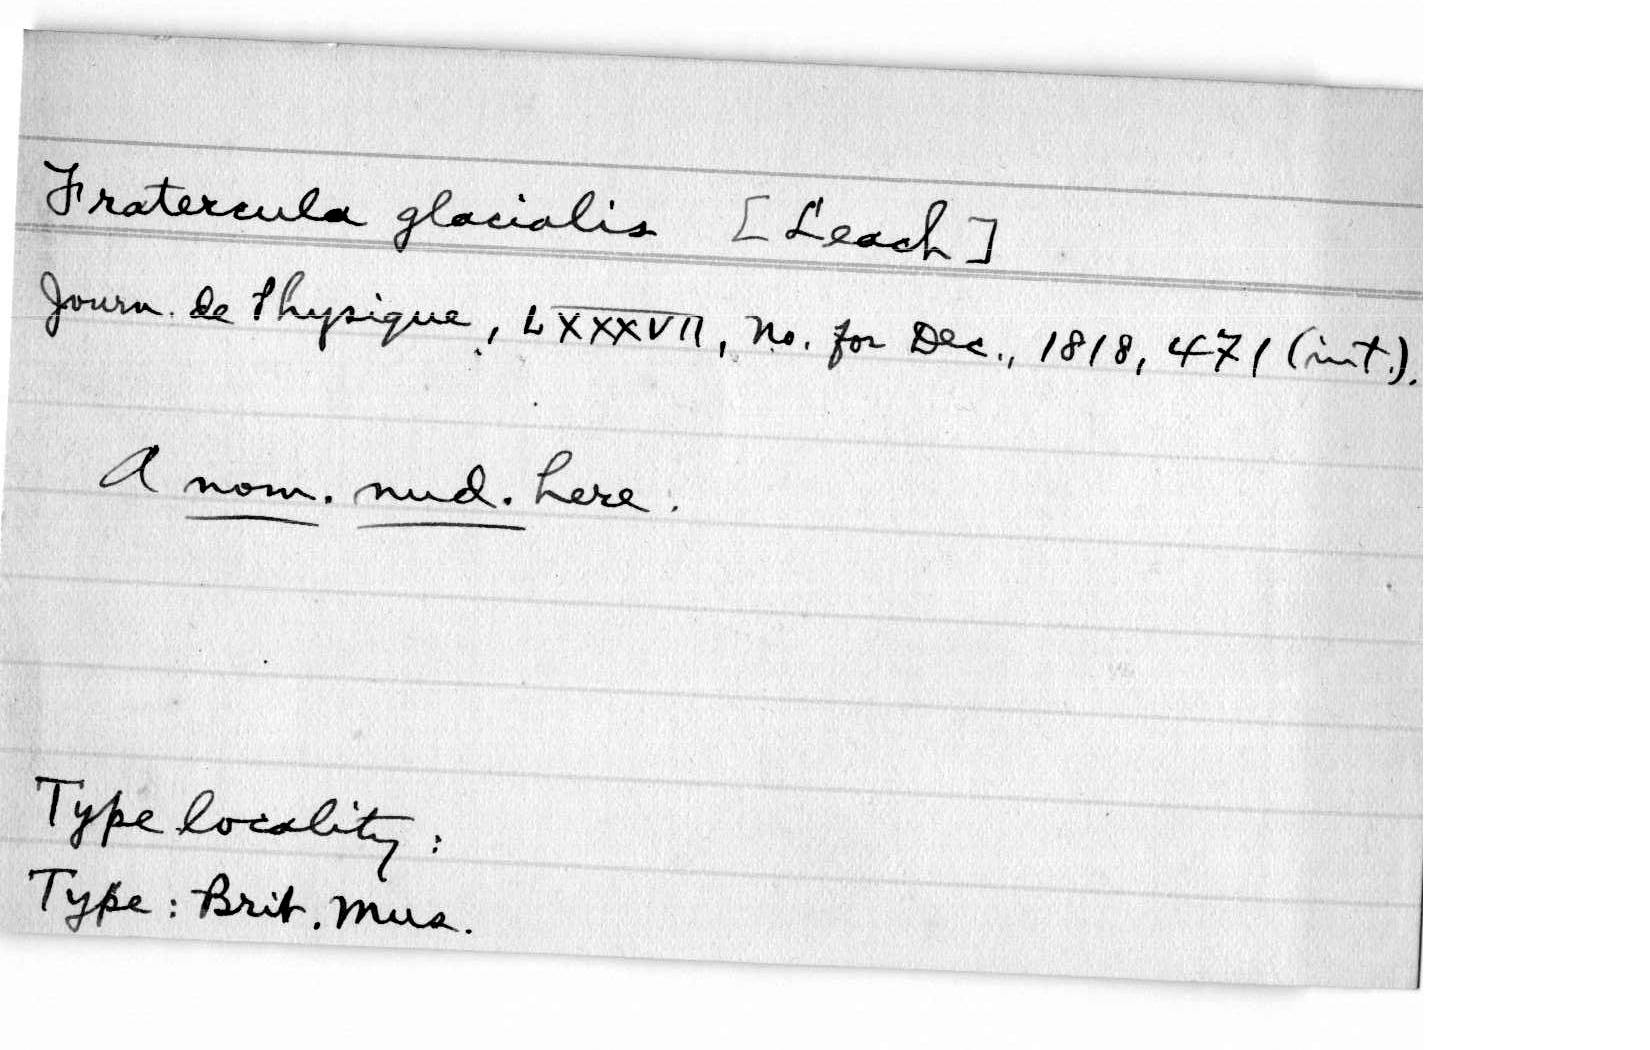 Fratercula glacialis [Leach]
Journ. de Physique, LXXXVII, No. for Dec., 1818, 471 (int.).
A nom. nud. here.
Type locality:
Type: Brit. Mus.